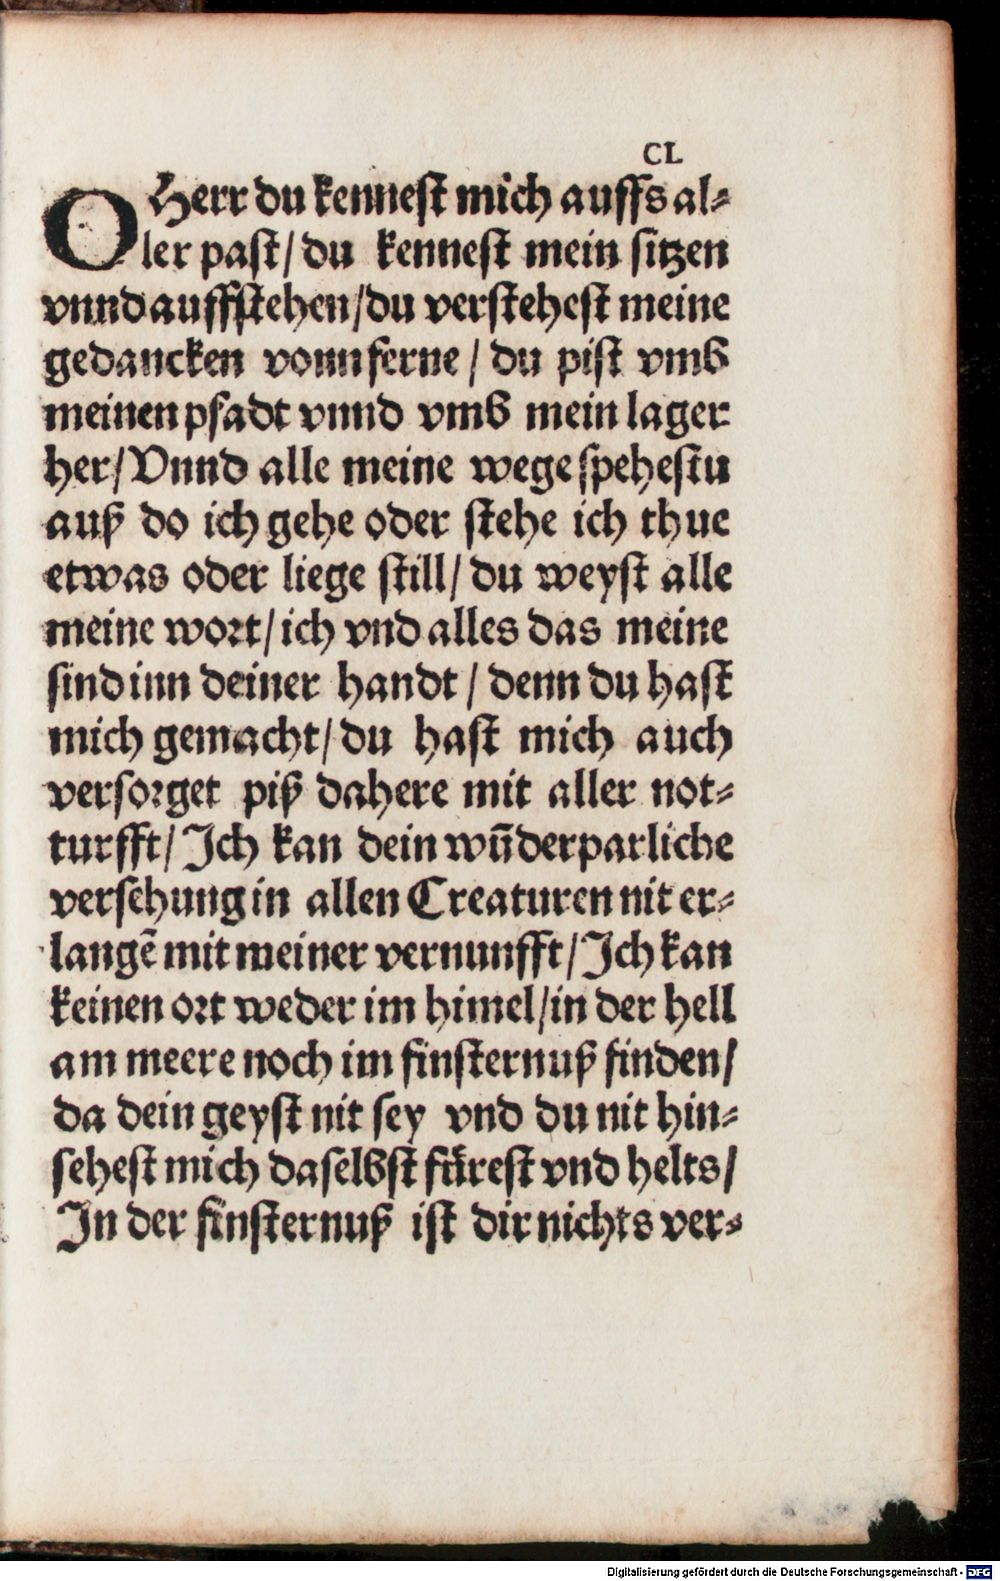 CL
O Herr du kennest mich auffs al⸗
ler past/ du kennest mein sitzen
vnnd auffstehen/du verstehest meine
gedancken vonn ferne / du pist vmb
meinen pfadt vnnd vmb mein lager
her/ Vnnd alle meine wege spehestu
auß do ich gehe oder stehe ich thue
etwas oder liege still/ du weyst alle
meine wort/ ich vnd alles das meine
sind inn deiner handt / denn du hast
mich gemacht/ du hast mich auch
versorget piß dahere mit aller not⸗
turfft/ Ich kan dein wūderparliche
versehung in allen Creaturen nit er⸗
langē mit meiner vernunfft/ Ich kan
keinen ort weder im himel/in der hell
am meere noch im finsternuß finden/
da dein geyst nit sey vnd du nit hin⸗
sehest mich daselbst fürest vnd helts/
In der finsternuß ist dir nichts ver⸗
Digitalisierung gefördert durch die Deutsche Forschungsgemeinschaft - DFG